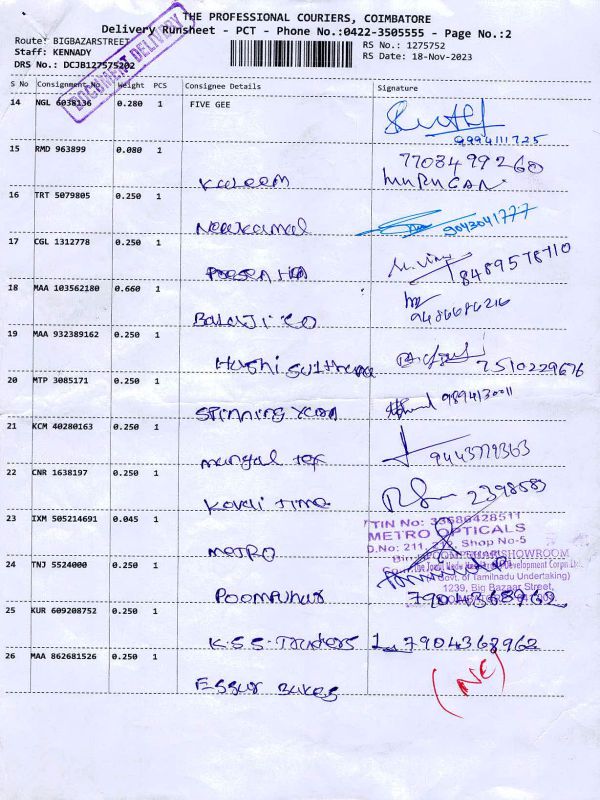 THE PROFESSIONAL COURIERS, COIMBATORE
Delivery Runsheet - PCT - Phone No.:0422-3505555 - Page No.:2
Route: BIGBAZARSTREET
Staff: KENNADY
DRS No.: DCJB127575202
RS No.: 1275752
RS Date: 18-Nov-2023
DOCUMENT DELIVERY
S No Consignment No Weight PCS Consignee Details Signature
14 NGL 6038136 0.280 1 FIVE GEE
9994111725
15 RMD 963899 0.080 1
Kaleem
7708499260
MURUGAN
16 TRT 5079805 0.250 1
Newkamal 9043041777
17 CGL 1312778 0.250 1
8489578710
18 MAA 103562180 0.660 1
Balaji co 9486686216
19 MAA 932389162 0.250 1
7510229676
20 MTP 3085171 0.250 1
Spinning yarn 9894130011
21 KCM 40280163 0.250 1
mangal tex
22 CNR 1638197 0.250 1
Kaveli time 2398583
23 IXM 505214691 0.045 1
METRO
TIN No: 33686428511
METRO OPTICALS
D.No: 211, Shop No-5
POOMPUHAR SHOWROOM
Govt. of Tamilnadu Undertaking)
1239, Big Bazaar Street,
24 TNJ 5524000 0.250 1
Poompuhar 7904368962
25 KUR 609208752 0.250 1
K.S.S. Traders 7904368962
26 MAA 862681526 0.250 1
Essur Bakes (NE)